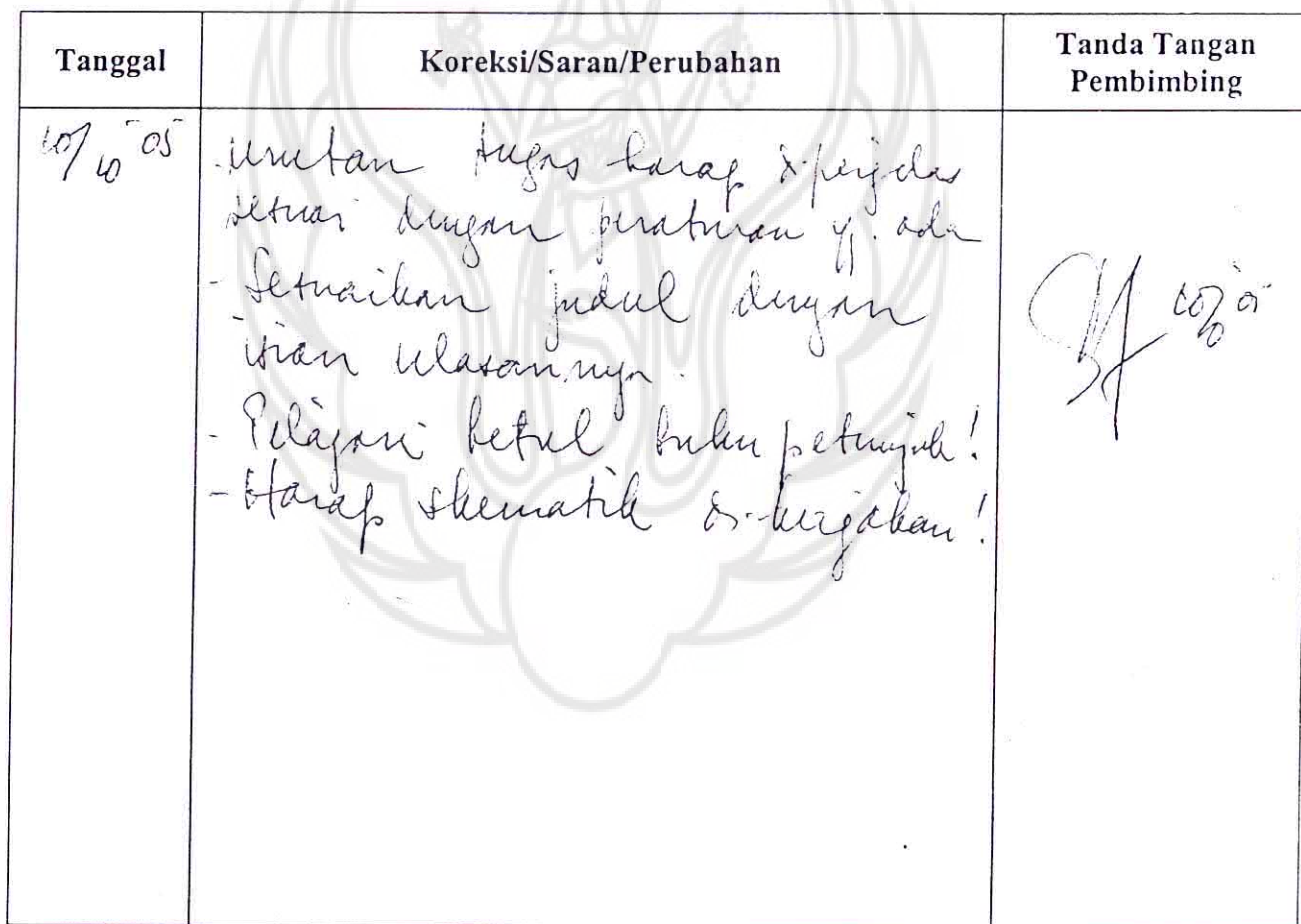 Tanggal
Koreksi/Saran/Perubahan
Tanda Tangan
Pembimbing
10/10 05
- Urutan tugas harap diperjelas
sesuai dengan peraturan yg. ada
- Sesuaikan judul dengan
isian ulasannya.
- Pelajari betul buku petunjuk!
- Harap skematik di-kerjakan!
10/10 05